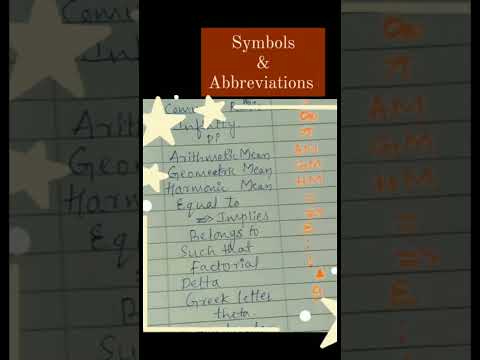 Symbols
&
Abbreviations
Infinity ∞
Pi π
Arithmetic Mean AM
Geometric Mean GM
Harmonic Mean HM
Equal to =
=> Implies =>
Belongs to
Such that :
Factorial !
Delta ▲
Greek letter θ
theta